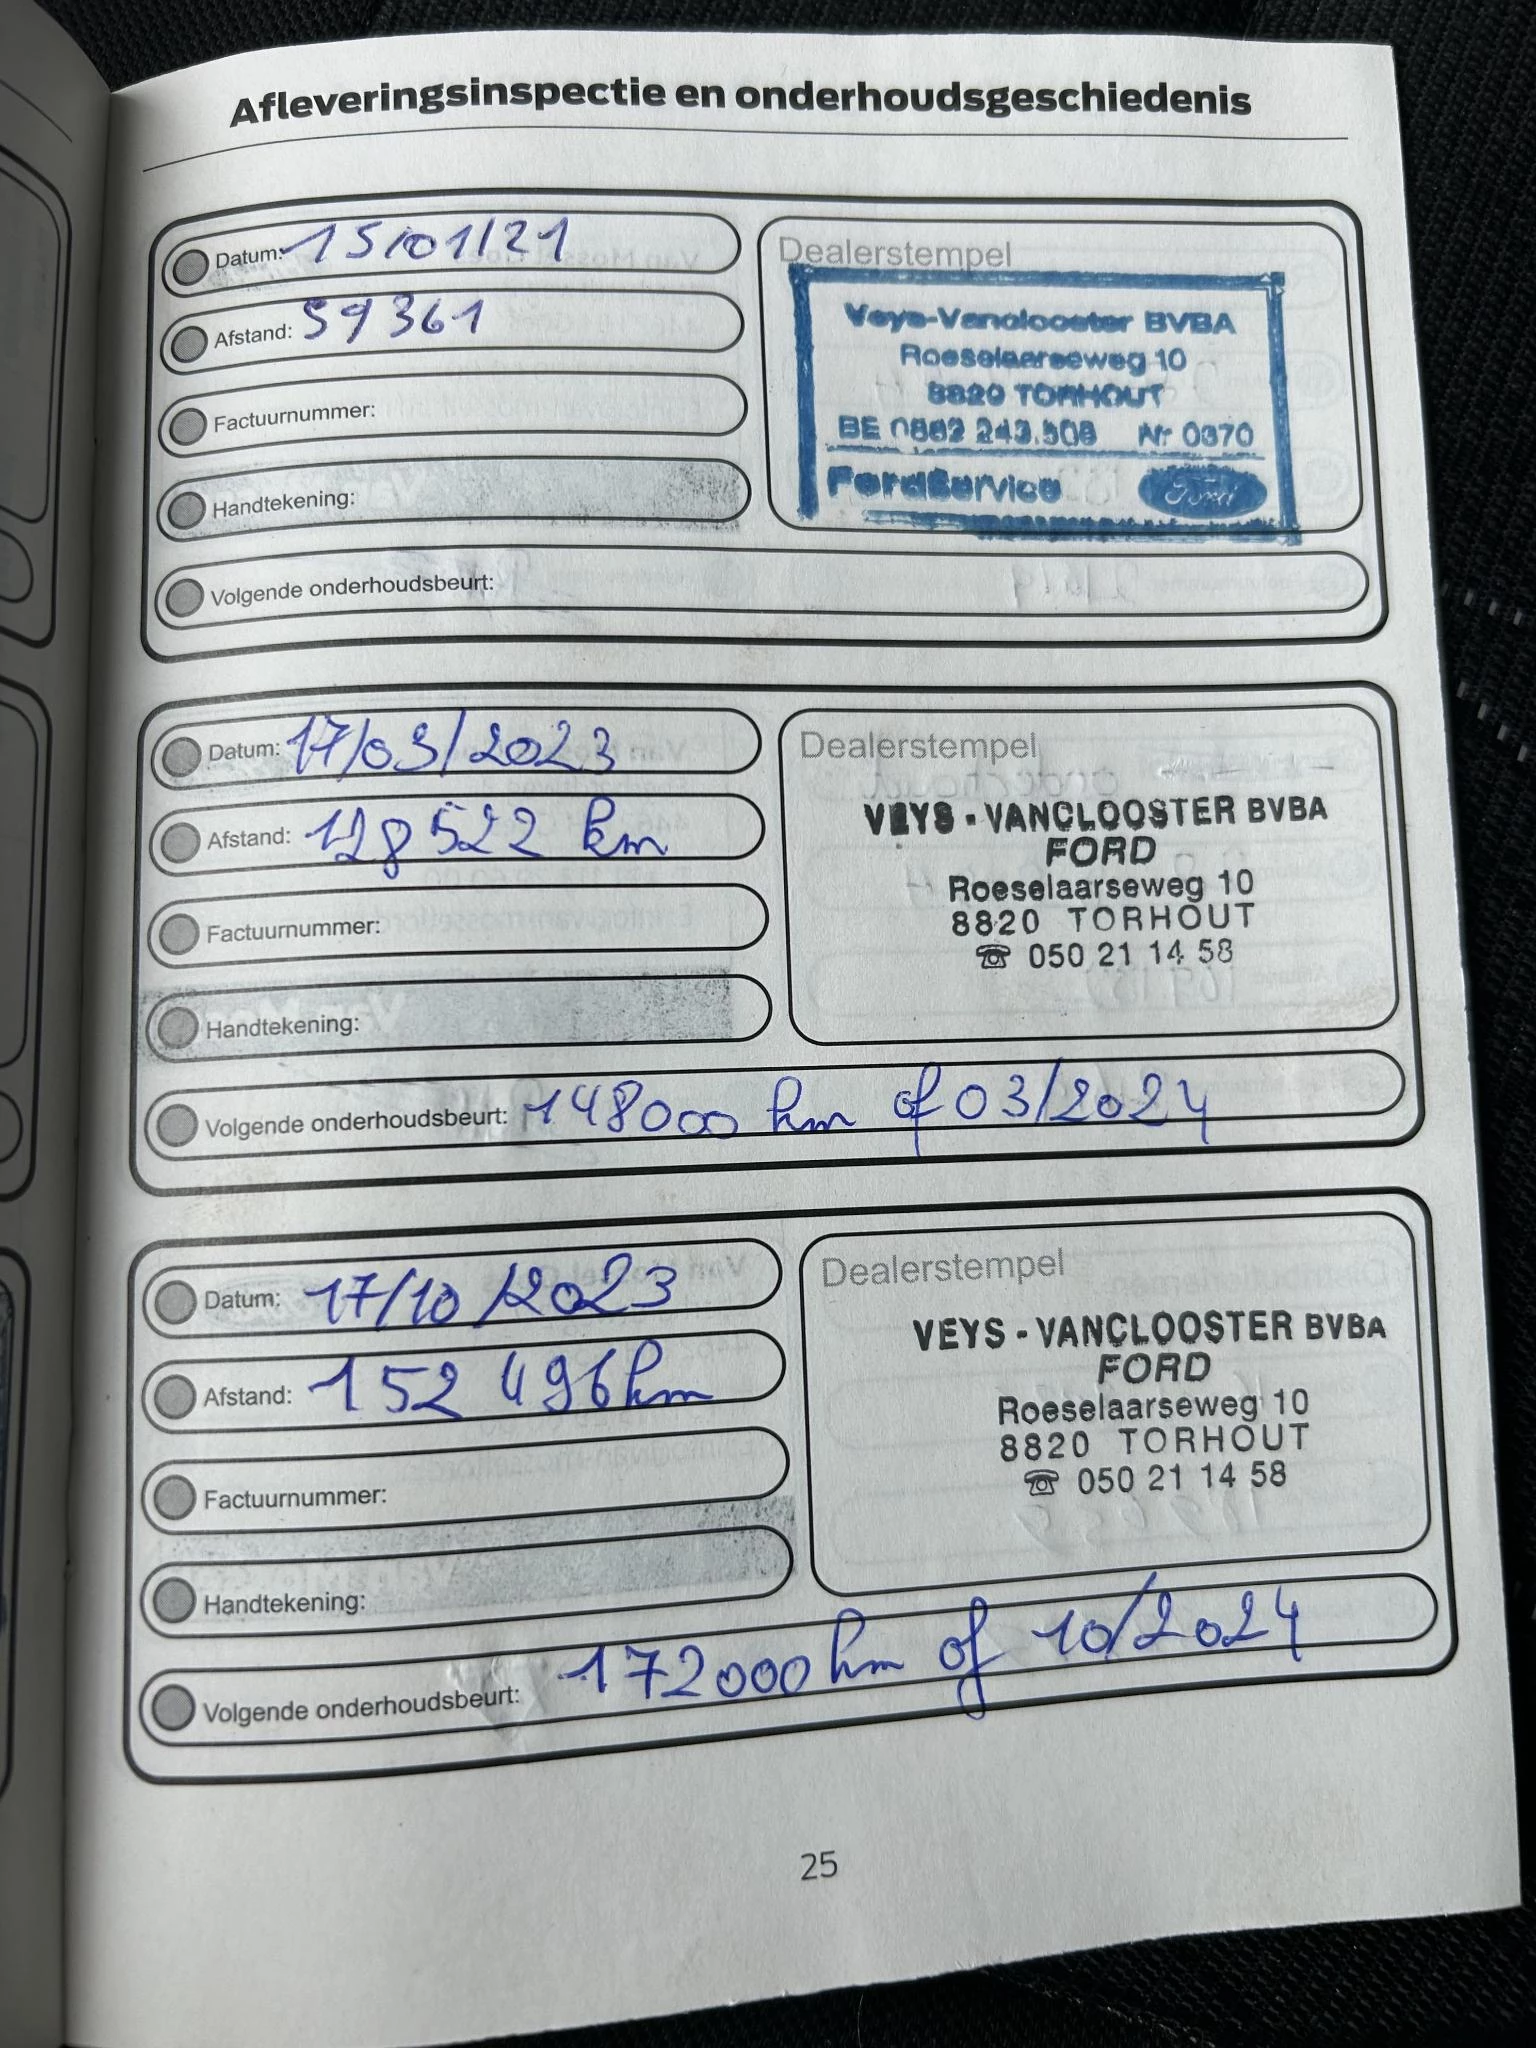 Afleveringsinspectie en onderhoudsgeschiedenis
Datum: 15/01/21
Afstand: 59361
Factuurnummer:
Handtekening:
Dealerstempel
Veys-Vanclooster BVBA
Roeselaarseweg 10
8820 TORHOUT
BE 0882 243.508 Nr 0370
FordService Ford
Volgende onderhoudsbeurt:
Datum: 17/03/2023
Afstand: 128522 km
Factuurnummer:
Handtekening:
Dealerstempel
VEYS - VANCLOOSTER BVBA
FORD
Roeselaarseweg 10
8820 TORHOUT
☎ 050 21 14 58
Volgende onderhoudsbeurt: 148000 km of 03/2024
Datum: 17/10/2023
Afstand: 152 496 km
Factuurnummer:
Handtekening:
Dealerstempel
VEYS - VANCLOOSTER BVBA
FORD
Roeselaarseweg 10
8820 TORHOUT
☎ 050 21 14 58
Volgende onderhoudsbeurt: 172000 km of 10/2024
25